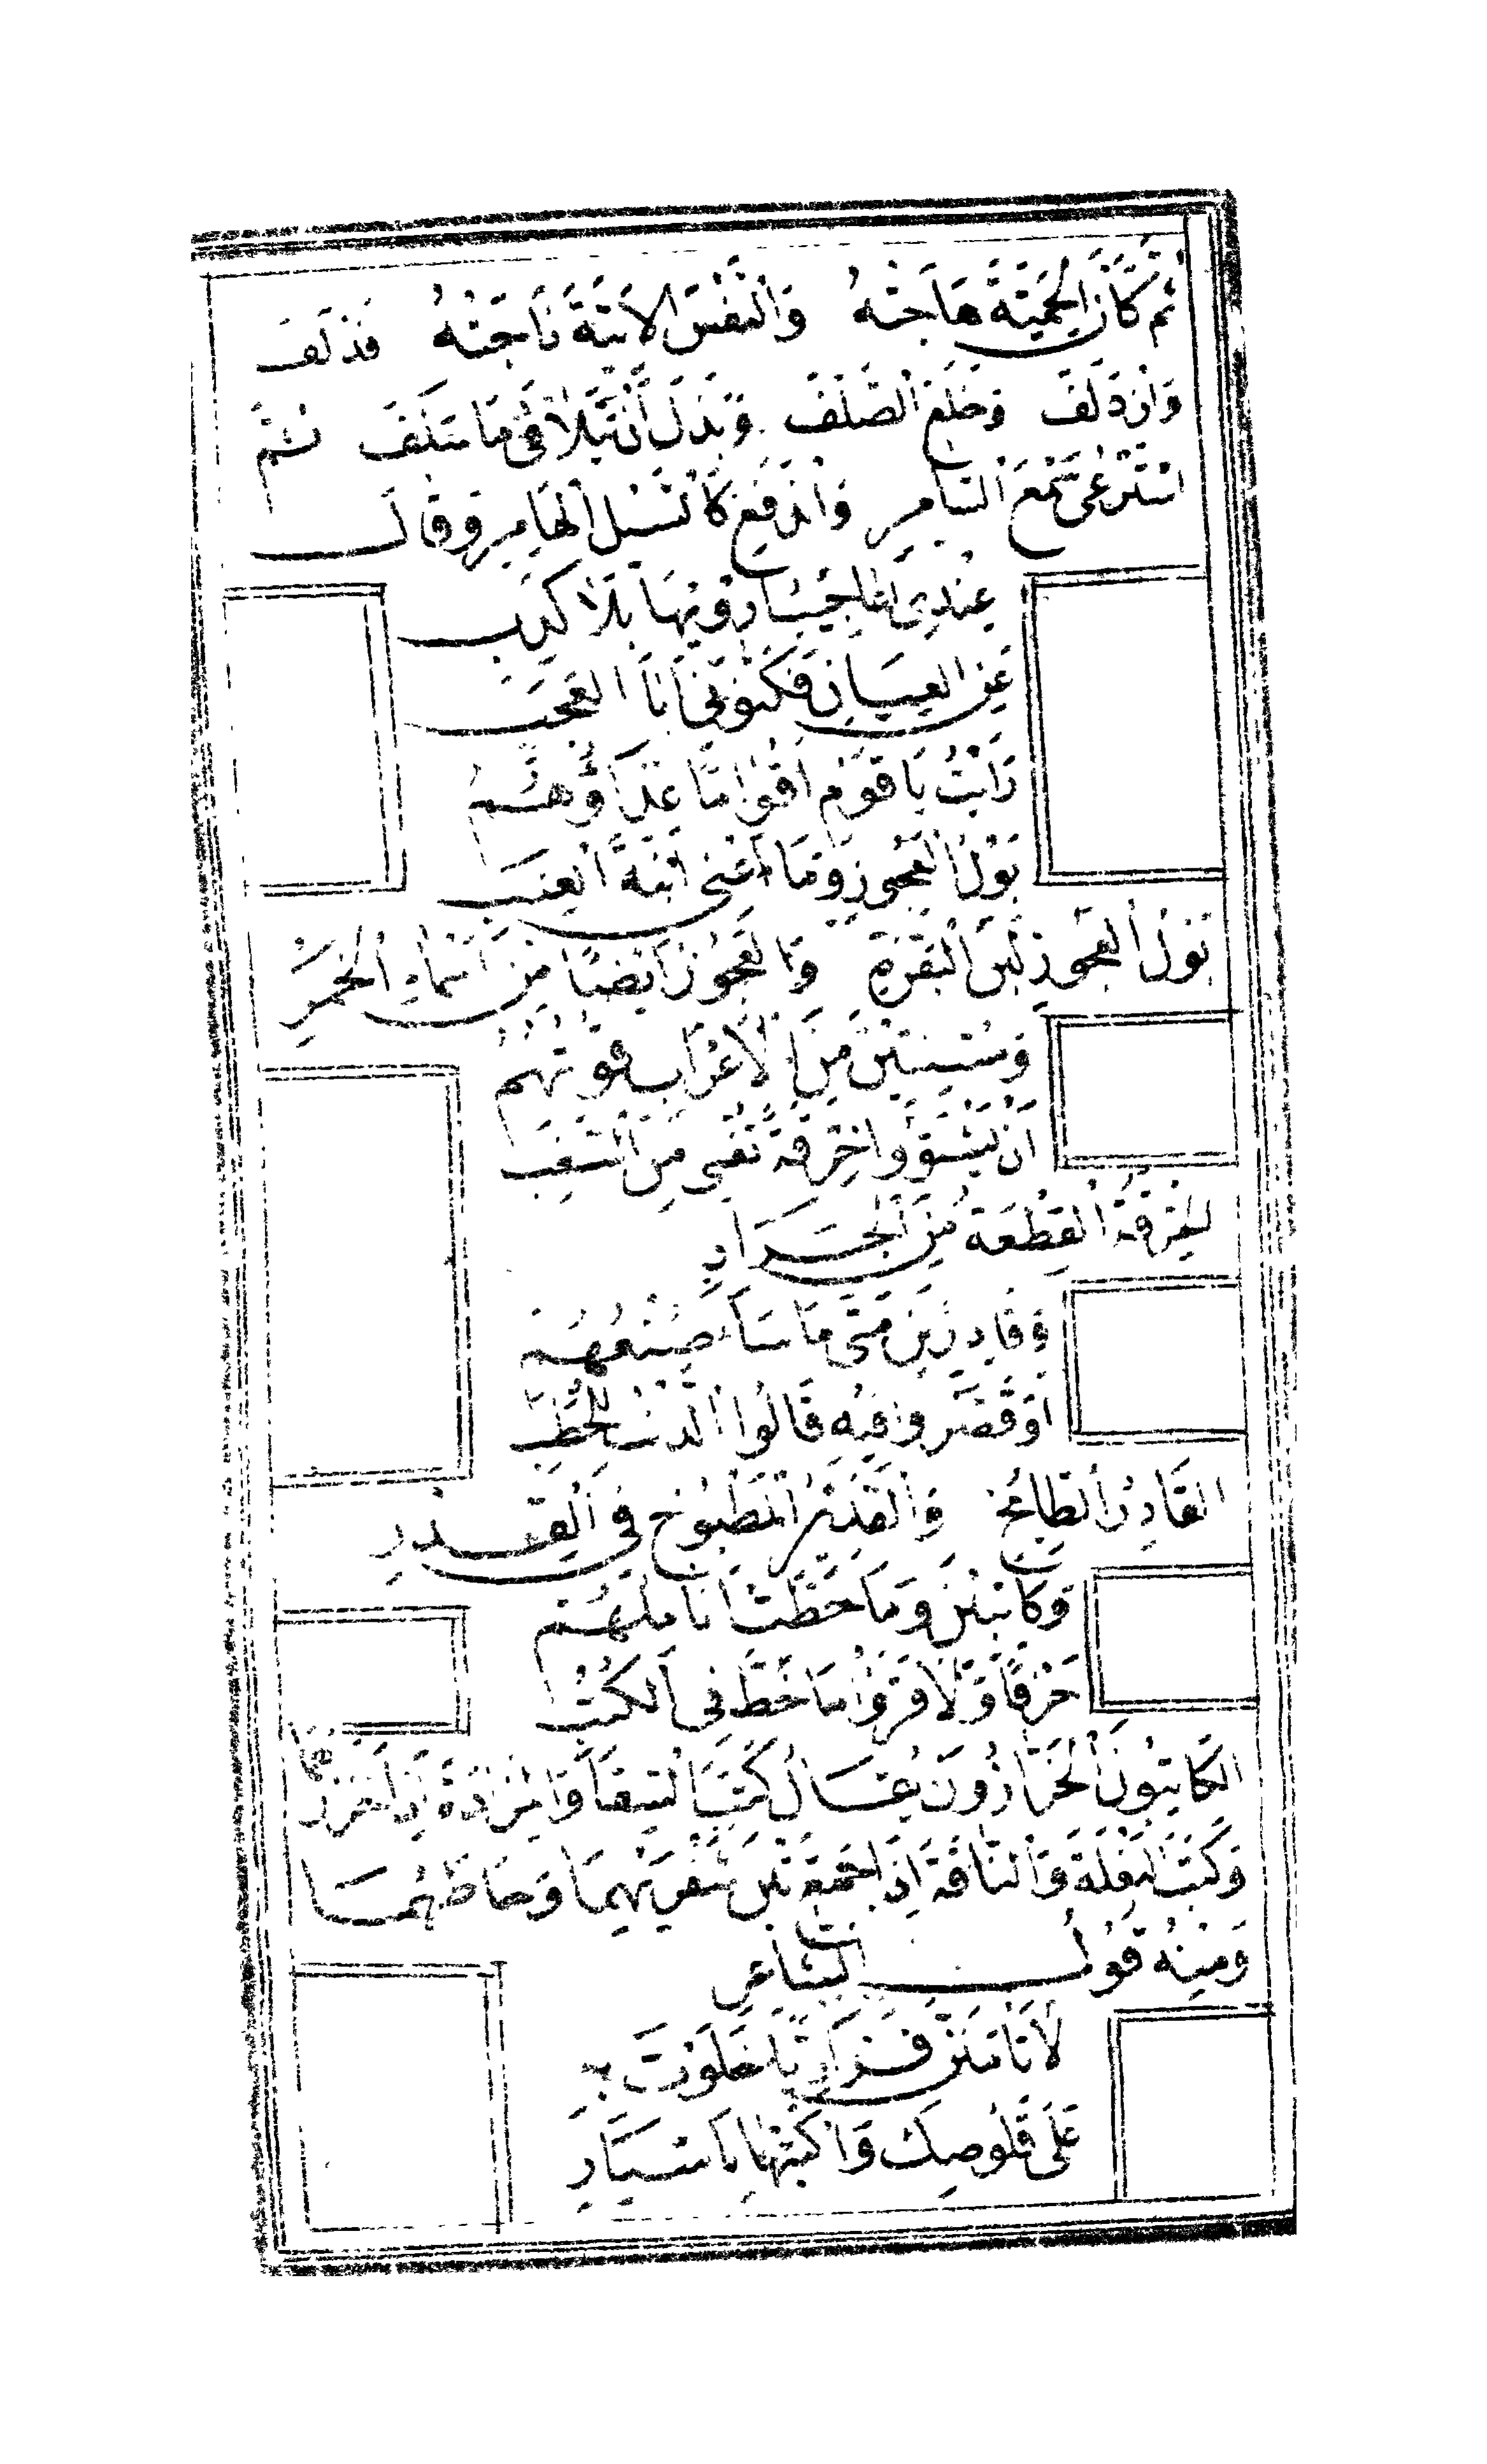 ثُمَّ كَأَنَّ الْحَمِيَّةَ هَاجَتْهُ وَالنَّفْسَ الْأَبِيَّةَ نَاجَتْهُ فَدَلَفَ
وَازْدَلَفَ وَخَلَعَ الصَّلَفَ وَبَذَلَ أَنْ يَتَلَافَى مَا سَلَفَ ثُمَّ
اسْتَرْعَى سَمْعَ السَّامِرِ وَانْدَفَعَ كَالسَّيْلِ الْهَامِرِ وَقَالَ
عِنْدِي أَعَاجِيبُ أَرْوِيهَا بِلَا كَذِبِ
عَنِ الْعِيَانِ فَكَنُّونِي أَبَا الْعَجَبِ
رَأَيْتُ يَا قَوْمِ أَقْوَامًا غِذَاؤُهُمُ
بَوْلُ الْعَجُوزِ وَمَا أَعْنِي ابْنَةَ الْعِنَبِ
بَوْلُ الْعَجُوزِ لَبَنُ الْبَقَرَةِ وَالْعَجُوزُ أَيْضًا مِنْ أَسْمَاءِ الْخَمْرِ
وَمُسْنِتِينَ مِنَ الْأَعْرَابِ قُوتُهُمُ
أَنْ يَشْتَوُوا خِرْقَةً تُغْنِي مِنَ السَّغَبِ
الْخِرْقَةُ الْقِطْعَةُ مِنَ الْجَرَادِ
وَقَادِرِينَ مَتَى مَا سَاءَ صُنْعُهُمُ
أَوْ قَصَّرُوا فِيهِ قَالُوا الذَّنْبُ لِلْحَطَبِ
الْقَادِرُ الطَّابِخُ وَالْقَدِيرُ الْمَطْبُوخُ فِي الْقِدْرِ
وَكَاتِبِينَ وَمَا خَطَّتْ أَنَامِلُهُمْ
حَرْفًا وَلَا قَرَؤُا مَا خُطَّ فِي الْكُتُبِ
الْكَاتِبُونَ الْخَرَّازُونَ يُقَالُ كَتَبَ السِّقَاءَ وَالْمَزَادَةَ إِذَا خَرَزَهُمَا
وَكَتَبَ الْبَغْلَةَ وَالنَّاقَةَ إِذَا جَمَعَ بَيْنَ شُفْرَيْهِمَا وَخَاطَهُمَا
وَمِنْهُ قَوْلُ الشَّاعِرِ
لَا تَأْمَنَنَّ فَزَارِيًّا خَلَوْتَ بِهِ
عَلَى قَلُوصِكَ وَاكْتُبْهَا بِأَسْيَارِ